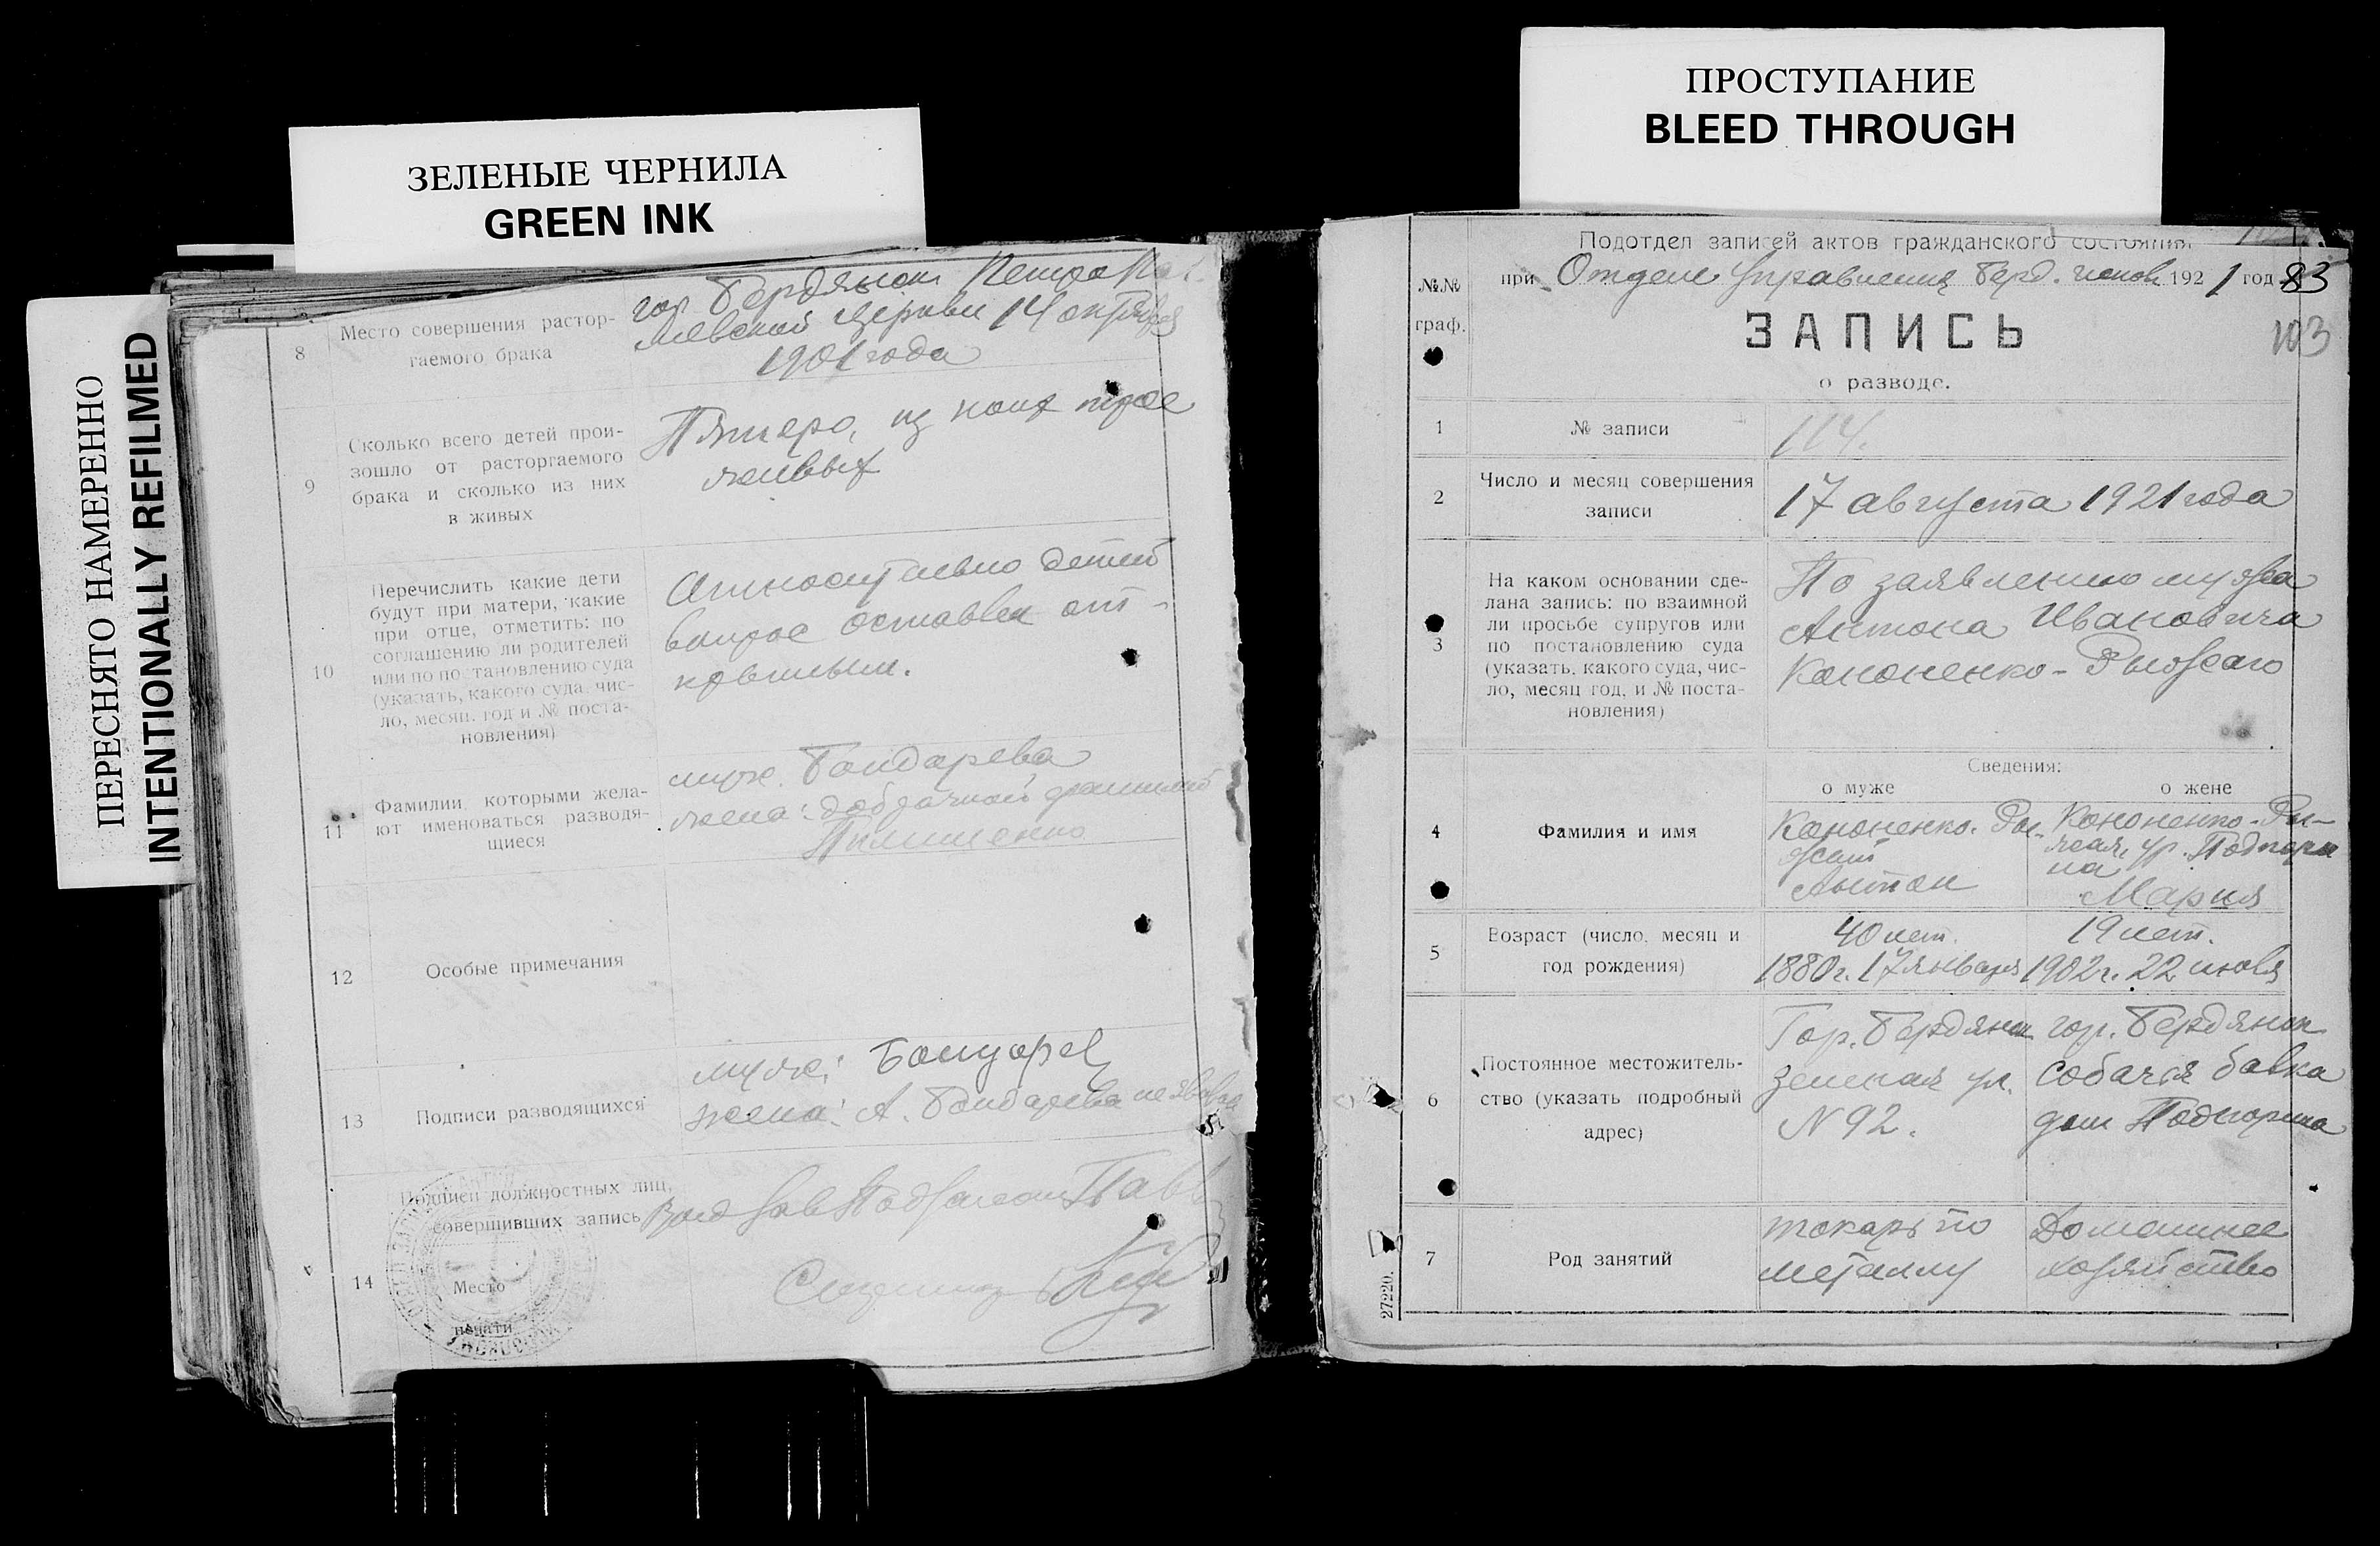 ЗЕЛЕНЫЕ ЧЕРНИЛА
GREEN INK
ПЕРЕСНЯТО НАМЕРЕННО
INTENTIONALLY REFILMED
8
Место совершения растор-
гаемого брака
гор. Бердянск Петро
Павской церкви 14 октября
1901 года
9
Сколько всего детей прои-
зошло от расторгаемого
брака и сколько из них
в живых
Пятеро, из коих трое
живых
10
Перечислить какие дети
будут при матери, какие
при отце, отметить: по
соглашению ли родителей
или по постановлению суда
(указать, какого суда, чис-
ло, месяц, год и № поста-
новления)
Относительно детей
вопрос оставлен от-
крытым.
11
Фамилии, которыми жела-
ют именоваться разводя-
щиеся
муж: Бондарева
жена: добрачной фамилией
12
Особые примечания
13
Подписи разводящихся
муж: Бондарев
жена: А. Бондарева не явилась
14
Подписи должностных лиц,
совершивших запись
Место
печати
ПРОСТУПАНИЕ
BLEED THROUGH
Подотдел записей актов гражданского состояния
№№
граф.
при Отделе Управления Берд. исполк. 1921 год 83
103
ЗАПИСЬ
о разводе.
1
№ записи
114.
2
Число и месяц совершения
записи
17 августа 1921 года
3
На каком основании сде-
лана запись: по взаимной
ли просьбе супругов или
по постановлению суда
(указать, какого суда, чис-
ло, месяц год, и № поста-
новления)
По заявлению мужа
Антона Ивановича
Кононенко-Рыжаго
Сведения:
о муже
о жене
4
Фамилия и имя
Кононенко-Ры-
жий
Антон
Кононенко-Ры-
жая, ур. Подпори
на
Мария
5
Возраст (число, месяц и
год рождения)
40 лет.
1880 г. 17 января
19 лет.
1902 г. 22 июля
6
Постоянное местожитель-
ство (указать подробный
адрес)
Гор. Бердянск
ул.
N 92.
гор. Бердянск
Собачья балка
дом Подпорина
7
Род занятий
токарь по
металлу
Домашнее
хозяйство
27220.